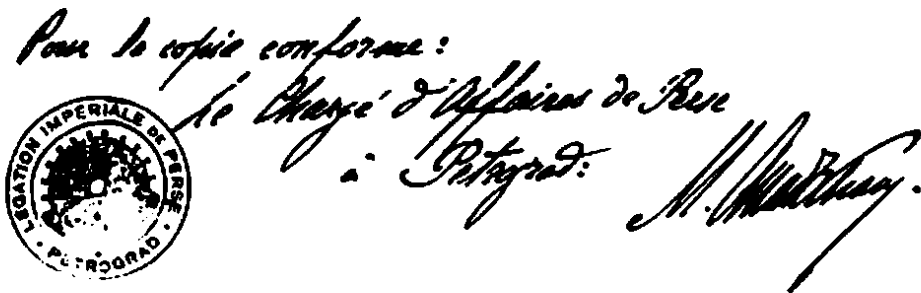 Pour la copie conforme:
Le Chargé d'Affaires de Perse
à Petrograd:
LEGATION IMPÉRIALE DE PERSE
PETROGRAD
M.